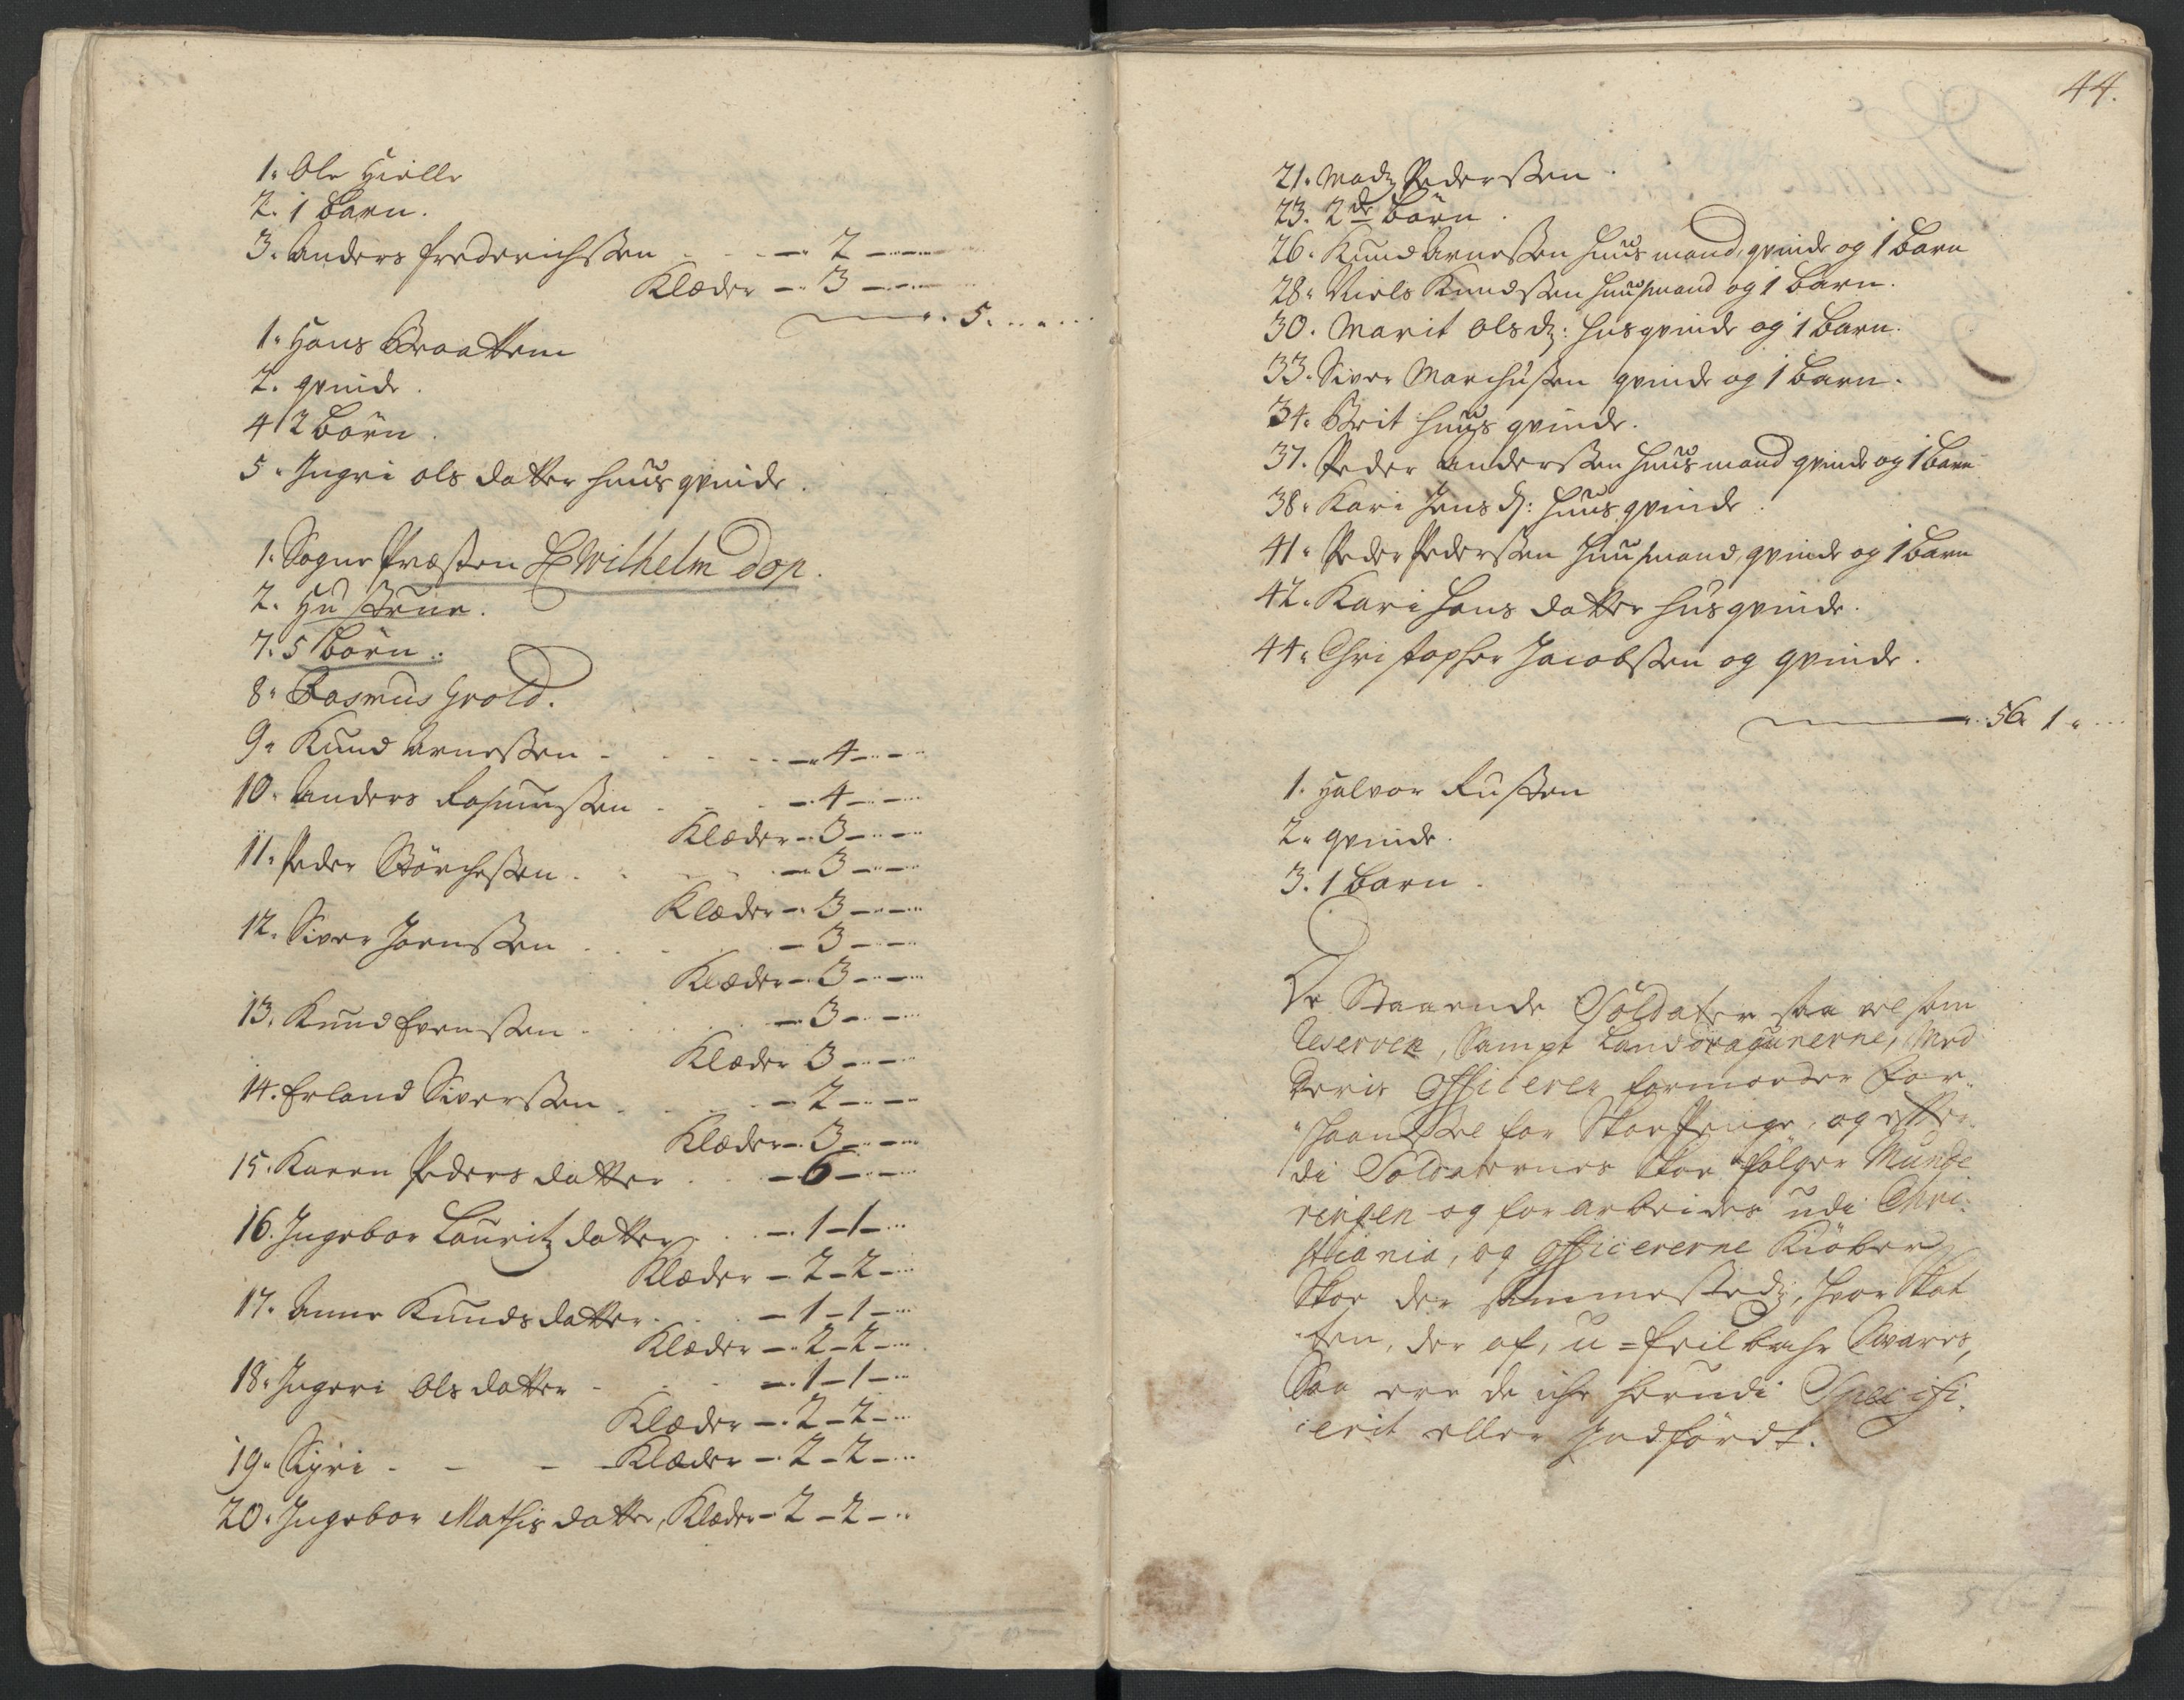 1. Ole Hielle
2. 1 barn.
3. Anders Frederichssen - - - 2 - - -
Klæder - 3 - - -
5.
1. Hans Braattem
2. qvinde.
4 / 2 börn.
5. Ingri ols datter huus qvinde.
1. Sogne Præsten Hr Wilhelm Dop.
2. Hustrue.
7. 5 börn.
8. Rasmus Grold.
9. Knud Arnessen - - - 4 - - -
10. Anders Rasmussen - - 4 - - -
Klæder - 3 - - -
11. Peder Börgessen - - 3 - - -
Klæder - 3 - - -
12. Siver Joenssen - - 3 - - -
Klæder - 3 - - -
13. Knud Evenssen - - 3 - - -
Klæder 3 - - -
14. Erland Siverssen - - 2 - - -
Klæder - 3 - - -
15. Karen Peders datter - - 6 - - -
16. Ingebor Lauritz datter - - 1 - 1 -
Klæder - 2 - 2 -
17. Anne Knuds datter - - 1 - 1 -
Klæder - 2 - 2 -
18. Ingeri Ols datter - - 1 - 1 -
Klæder - 2 - 2 -
19. Sigri - - - Klæder - 2 - 2 -
20. Ingebor Mathis datter, Klæder - 2 - 2 -
44.
21. Madz Pederssen.
23. 2de börn.
26. Knud Arnessen huus mand, qvinde og 1 barn
28. Niels Knudssen huusmand og 1 barn.
30. Marit Olsdr: husqvinde og 1 barn.
33. Siver Marchussen qvinde og 1 barn.
34. Berit huus qvinde.
37. Peder Anderssen huus mand qvinde og 1 barn
38. Kari Jens dr: huus qvinde.
41. Peder Pederssen huusmand, qvinde og 1 barn
42. Kari Hans datter husqvinde.
44. Christopher Jacobssen og qvinde.
56. 1.
1. Halvor Russen
2. qvinde.
3. 1 barn.
De Staaende Soldater saa vel som
Reserven, Sampt Landdragunerne, Med
Deris Officerer formoeder for-
-skaanssel for Skoe Penge, og efter-
di Soldaternes Skoe fölger Munde
ringen og forarbeides udi Chri-
stiania, og Officererne Kiöber
Skoe der sammestedz, hvor Skat
ten, der af, u=feilbahr Svares,
Saa ere de iche herudi Specifi-
cerit eller Indfördt.
56-1-